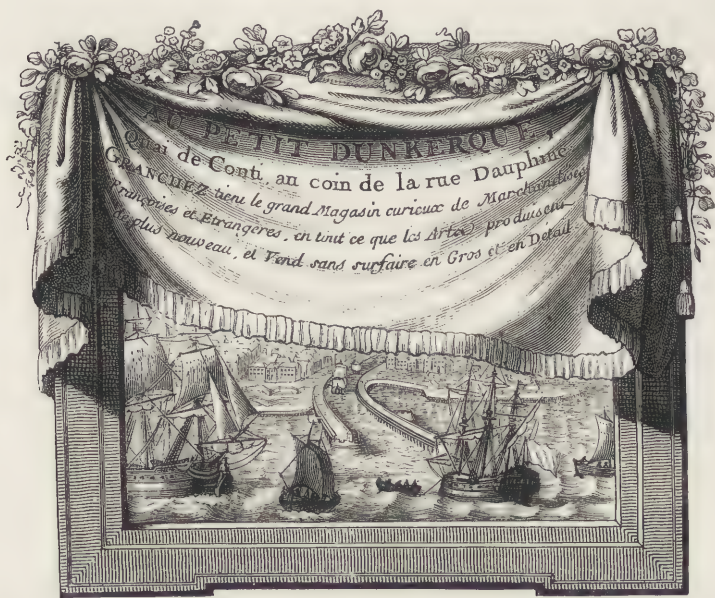 AU PETIT DUNKERQUE,
Quai de Conti, au coin de la rue Dauphine
GRANCHEZ tient le grand Magasin curieux de Marchandises
Françoises et Etrangeres, en tout ce que les Arts produisent
de plus nouveau, et Vend sans surfaire en Gros et en Detail